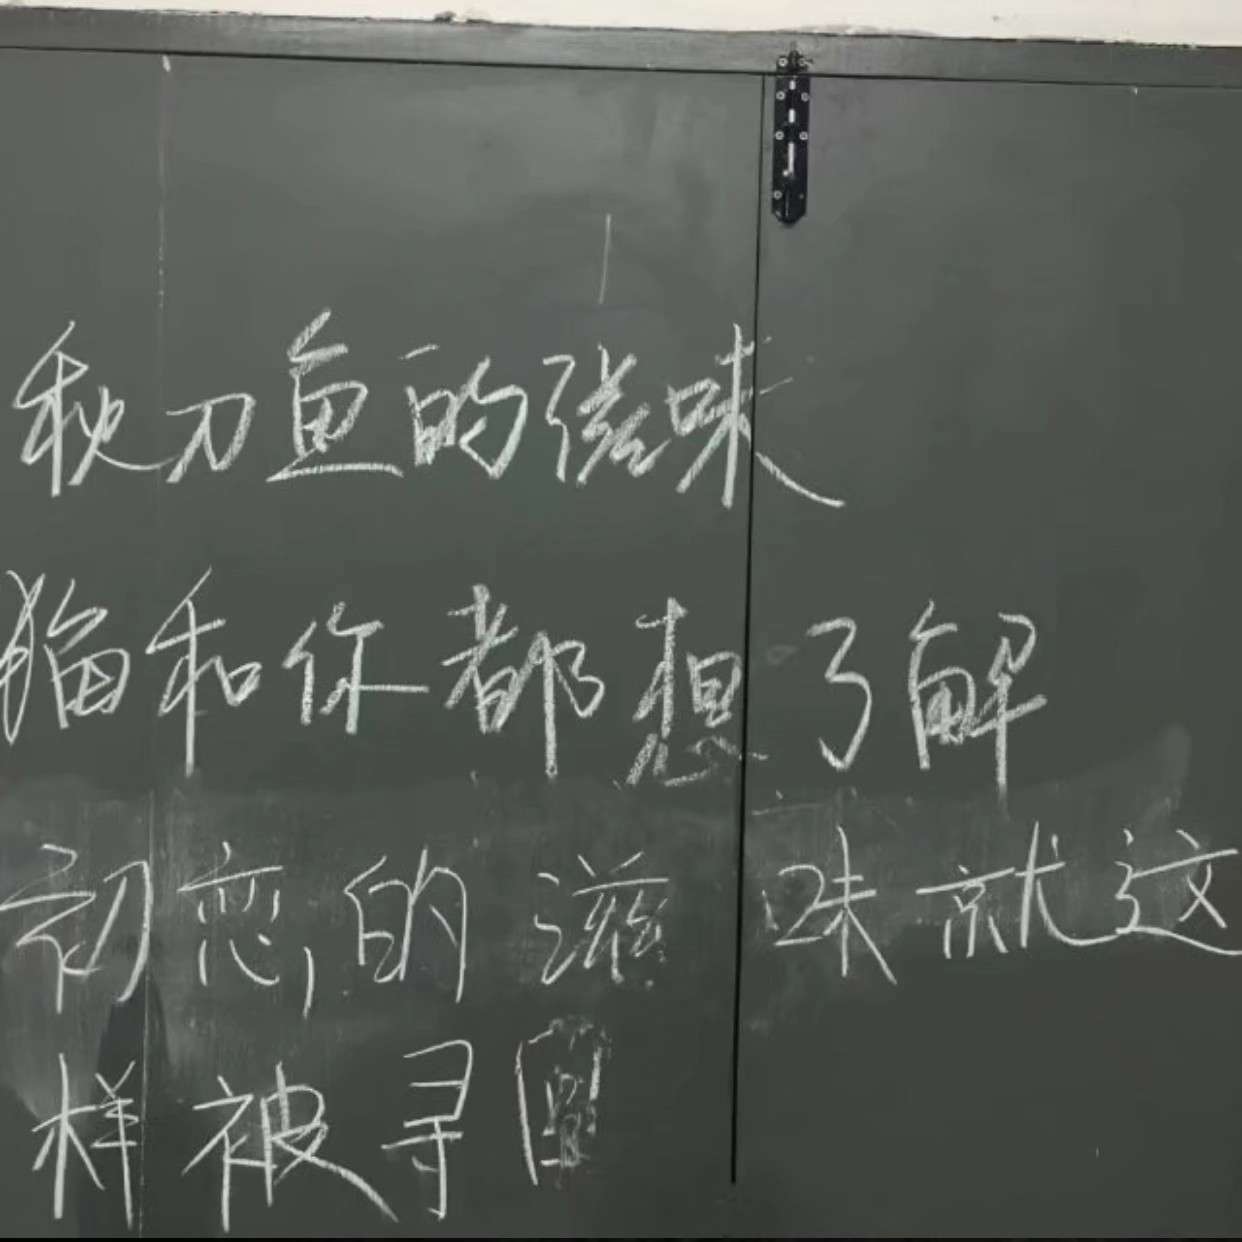 秋刀鱼的滋味
猫和你都想了解
初恋的滋味就这
样被寻回